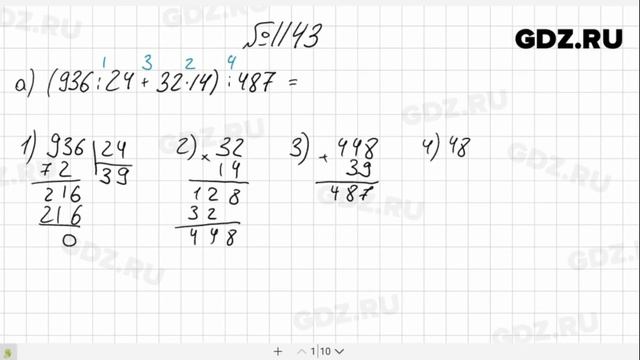 №1143
GDZ.RU
1 3 2 4
а) (936:24 + 32·14) : 487 =
1) 936 24
72 39
216
216
0
2) × 32
14
128
32
448
3) + 448
39
487
4) 48
GDZ.RU
GDZ.RU
GDZ.RU
GDZ.RU
GDZ.RU
+ 1|10